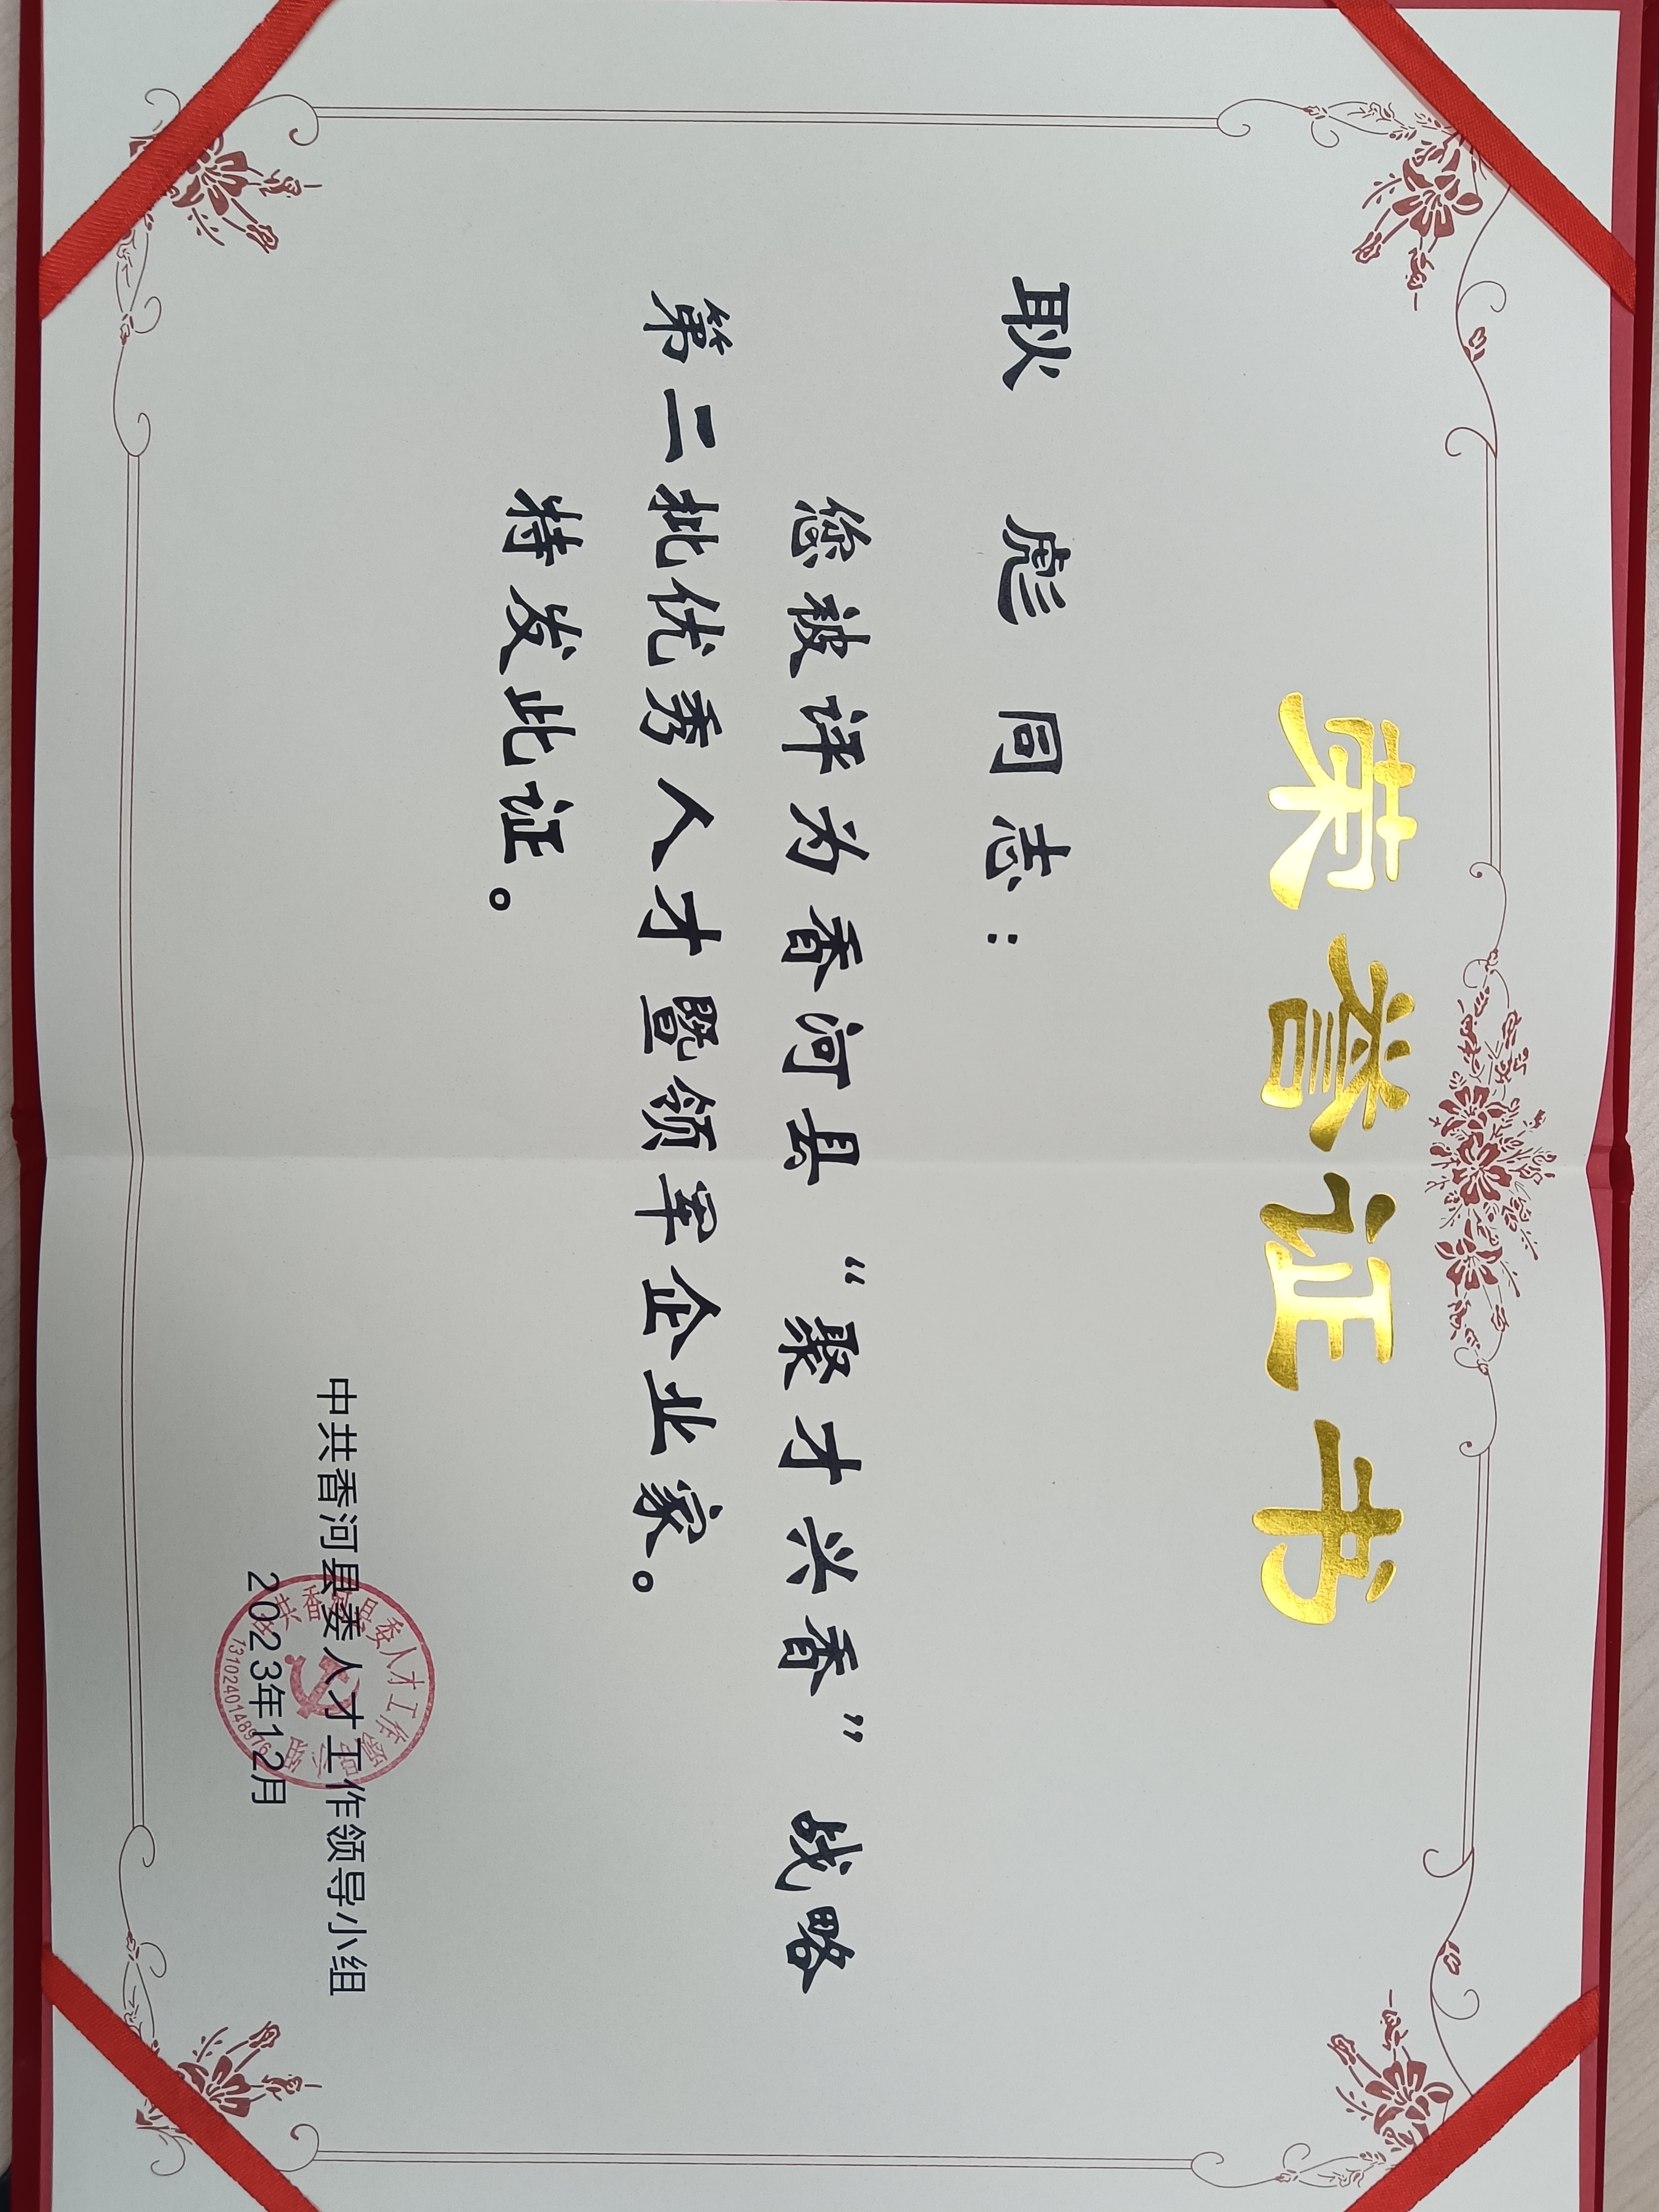 荣誉证书
耿 彪 同志：
您被评为香河县“聚才兴香”战略
第二批优秀人才暨领军企业家。
特发此证。
中共香河县委人才工作领导小组
2023年12月
中共香河县委人才工作领导小组
1310240148976